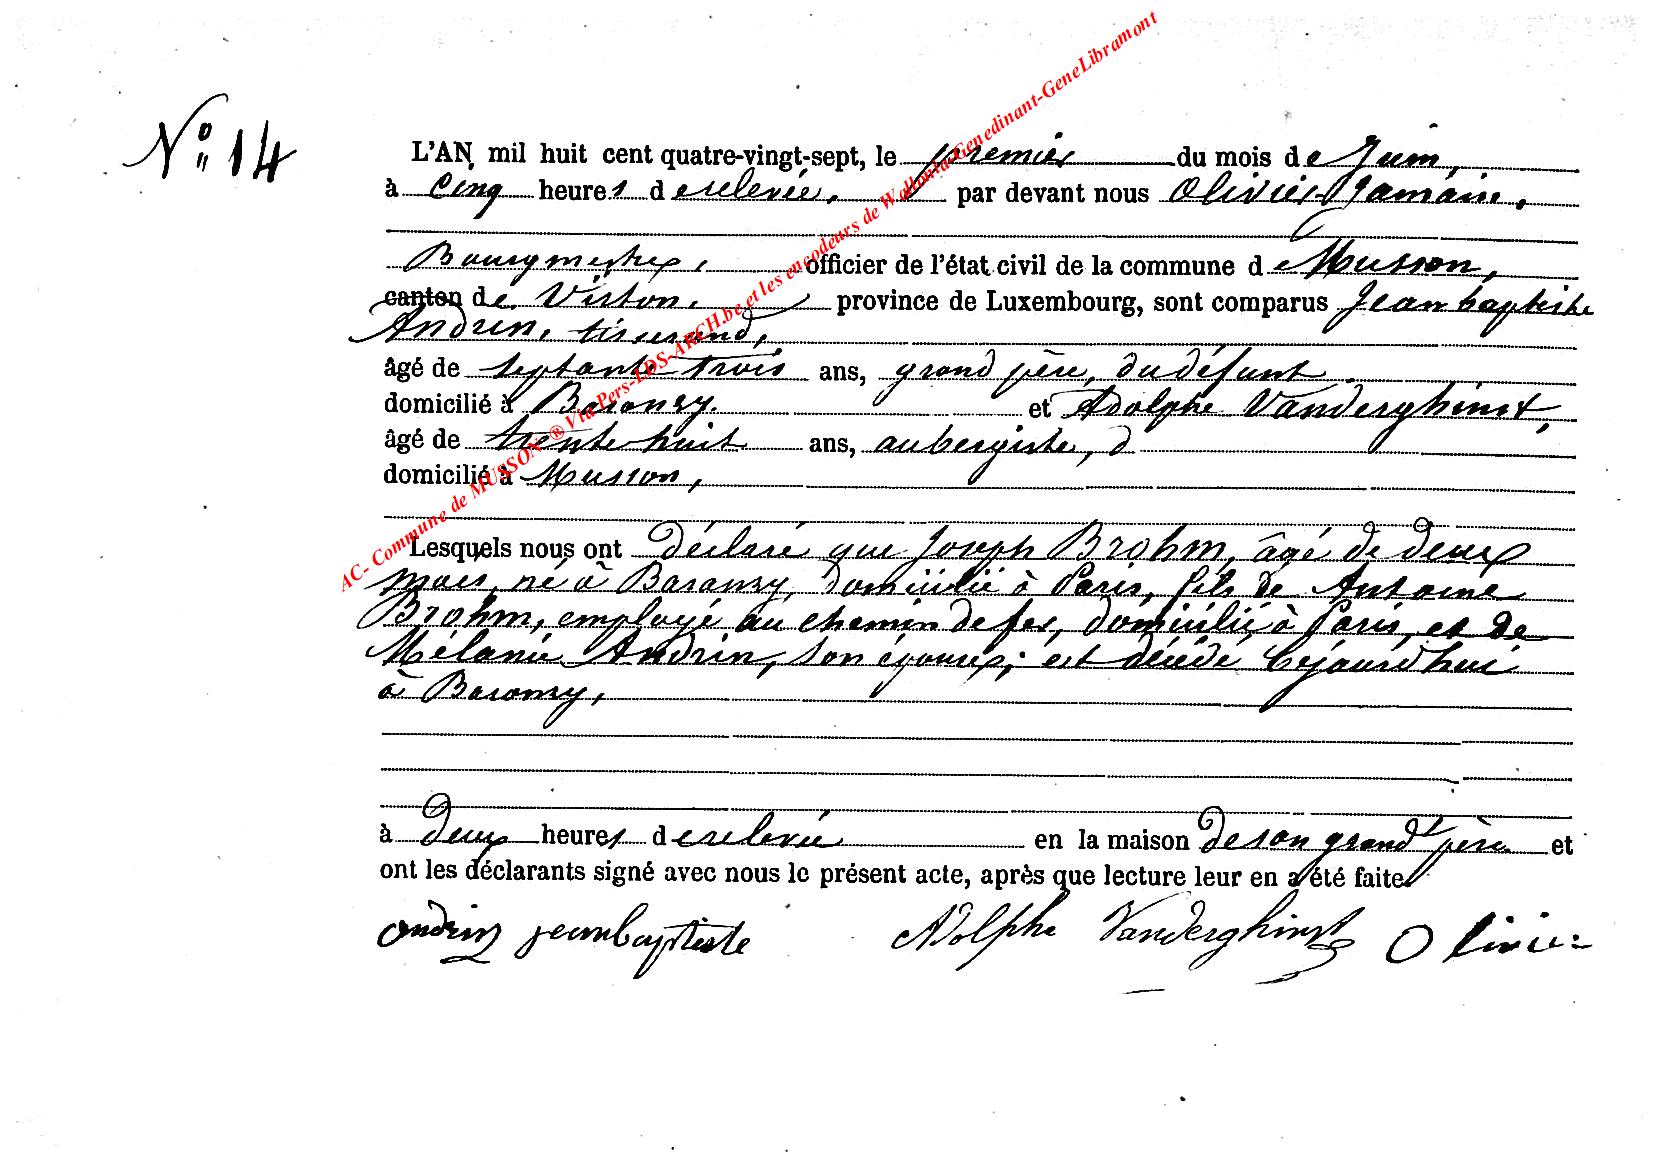 N° 14
L'AN mil huit cent quatre-vingt-sept, le premier du mois de Juin,
à cinq heures de relevée, par devant nous Olivier Jamain,
Bourgmestre, officier de l'état civil de la commune de Musson,
canton de Virton, province de Luxembourg, sont comparus Jean baptiste
Andrin, tisserand,
âgé de septante trois ans, grand père, du défunt
domicilié à Baranzy. et Adolphe Vanderghinst,
âgé de trente huit ans, aubergiste, d
domicilié à Musson,
Lesquels nous ont déclaré que Joseph Brohm, âgé de deux
mois, né à Baranzy, domicilié à Paris, fils de Antoine
Brohm, employé au chemin de fer, domicilié à Paris, et de
Mélanie Andrin, son épouse; est décédé cejourd'hui
à Baranzy,
à deux heures de relevée en la maison de son grand père et
ont les déclarants signé avec nous le présent acte, après que lecture leur en a été faite
andrin jeanbaptiste Adolphe Vanderghinst Olivier
AC- Commune de MUSSON ® Via Pers-LDS-ARCH.be et les encodeurs de Wallonia-Genedinant-GeneLibramont